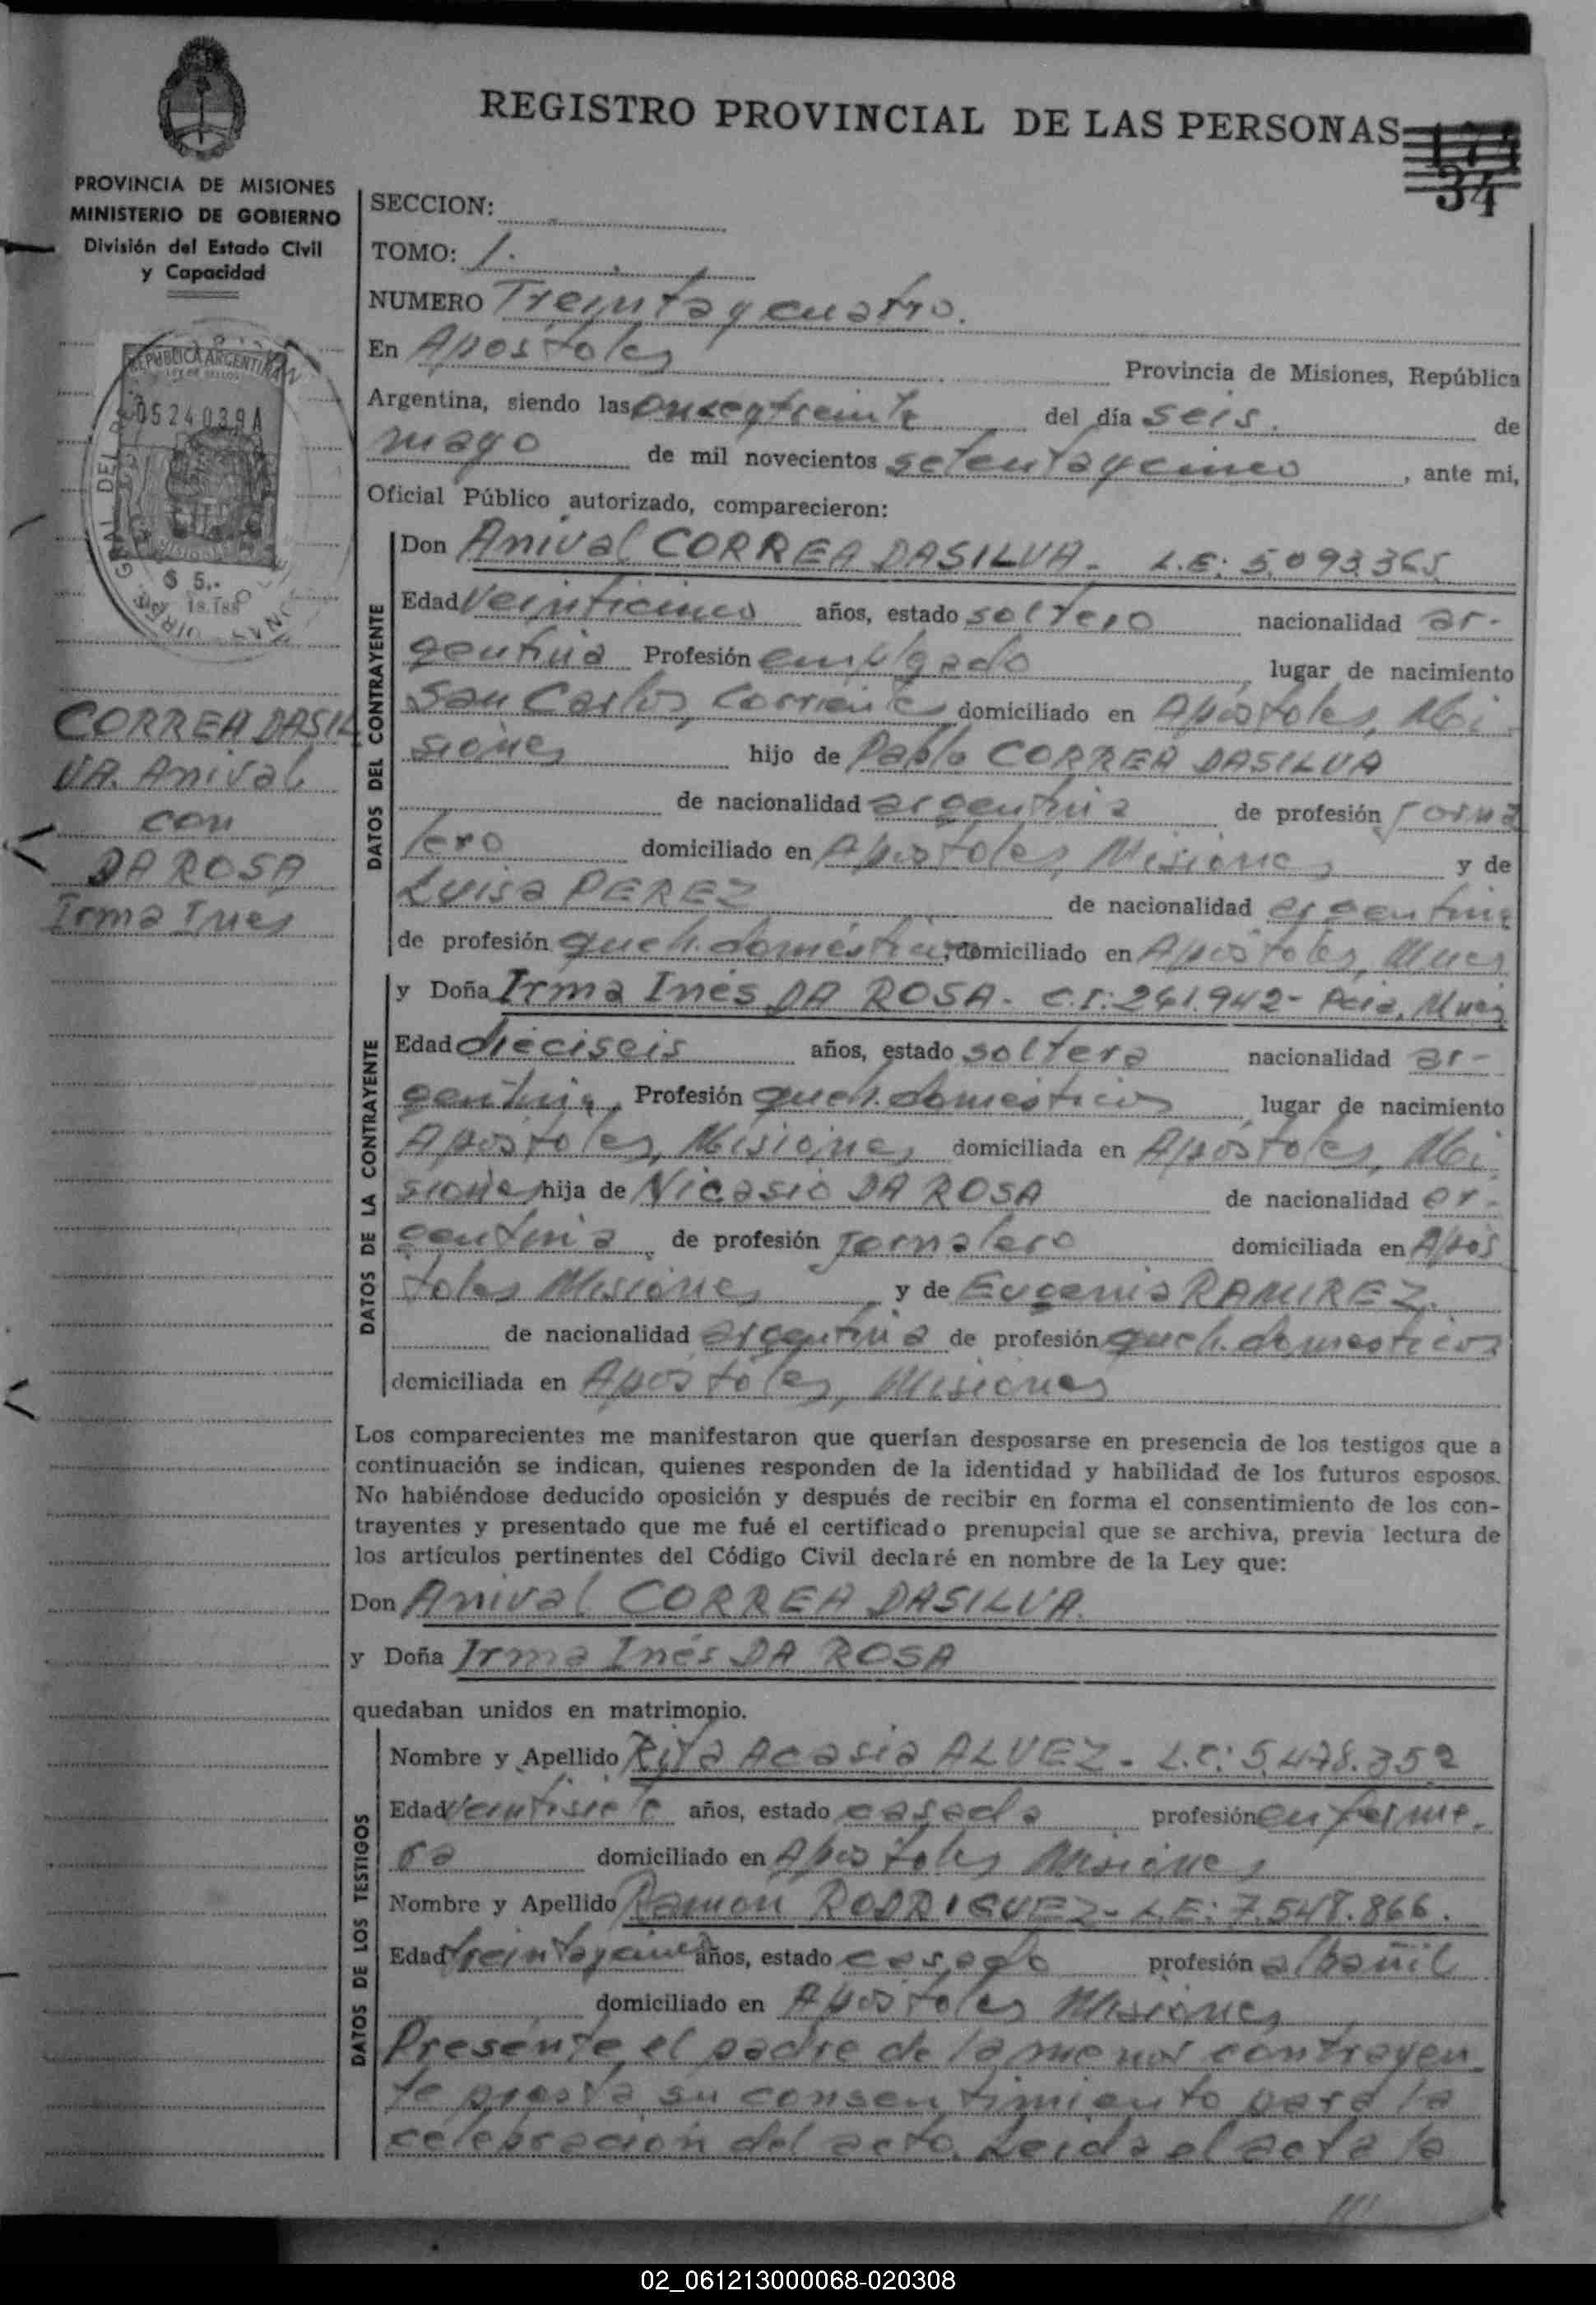 REGISTRO PROVINCIAL DE LAS PERSONAS
34
PROVINCIA DE MISIONES
MINISTERIO DE GOBIERNO
División del Estado Civil
y Capacidad
REPUBLICA ARGENTINA
0524039A
$ 5.-
CORREA DASIL
VA. Anival
con
DA ROSA
Irma Inés
SECCION:
TOMO: 1.
NUMERO Treinta y cuatro.
En Apóstoles Provincia de Misiones, República
Argentina, siendo las onceytreinta del día seis. de
mayo de mil novecientos setentaycinco, ante mi,
Oficial Público autorizado, comparecieron:
DATOS DEL CONTRAYENTE
Don Anival CORREA DASILVA. L.E: 5.093.365
Edad veinticinco años, estado soltero nacionalidad ar-
gentina Profesión empleado, lugar de nacimiento
San Carlos, Corrientes domiciliado en Apóstoles, Mi
siones hijo de Pablo CORREA DASILVA
de nacionalidad argentina de profesión jorna
lero domiciliado en Apóstoles, Misiones y de
Luisa PEREZ de nacionalidad argentina
de profesión queh. domésticos, domiciliado en Apóstoles, Mnes
DATOS DE LA CONTRAYENTE
y Doña Irma Inés DA ROSA. C.I: 261.942- Pcia. Mnes
Edad dieciseis años, estado soltera nacionalidad ar-
gentina, Profesión queh. domésticos, lugar de nacimiento
Apóstoles, Misiones domiciliada en Apóstoles, Mi
siones hija de Nicasio DA ROSA de nacionalidad ar-
gentina, de profesión jornalero domiciliada en Após
toles Misiones y de Eugenia RAMIREZ.
de nacionalidad argentina de profesión queh. domesticos
domiciliada en Apóstoles, Misiones
Los comparecientes me manifestaron que querían desposarse en presencia de los testigos que a
continuación se indican, quienes responden de la identidad y habilidad de los futuros esposos.
No habiéndose deducido oposición y después de recibir en forma el consentimiento de los con-
trayentes y presentado que me fué el certificado prenupcial que se archiva, previa lectura de
los artículos pertinentes del Código Civil declaré en nombre de la Ley que:
Don Anival CORREA DASILVA.
y Doña Irma Inés DA ROSA
quedaban unidos en matrimonio.
DATOS DE LOS TESTIGOS
Nombre y Apellido Rita Acasia ALVEZ - L.C: 5.478.352
Edad veintisiete años, estado casada profesión enferme.
ra domiciliado en Apóstoles Misiones
Nombre y Apellido Ramón RODRIGUEZ- L.E: 7.548.866.
Edad treintaycinco años, estado casado profesión albañil
domiciliado en Apóstoles Misiones
Presente el padre de la menor contrayen
te presta su consentimiento para la
celebración del acto. Leida el acta la
///
02_061213000068-020308